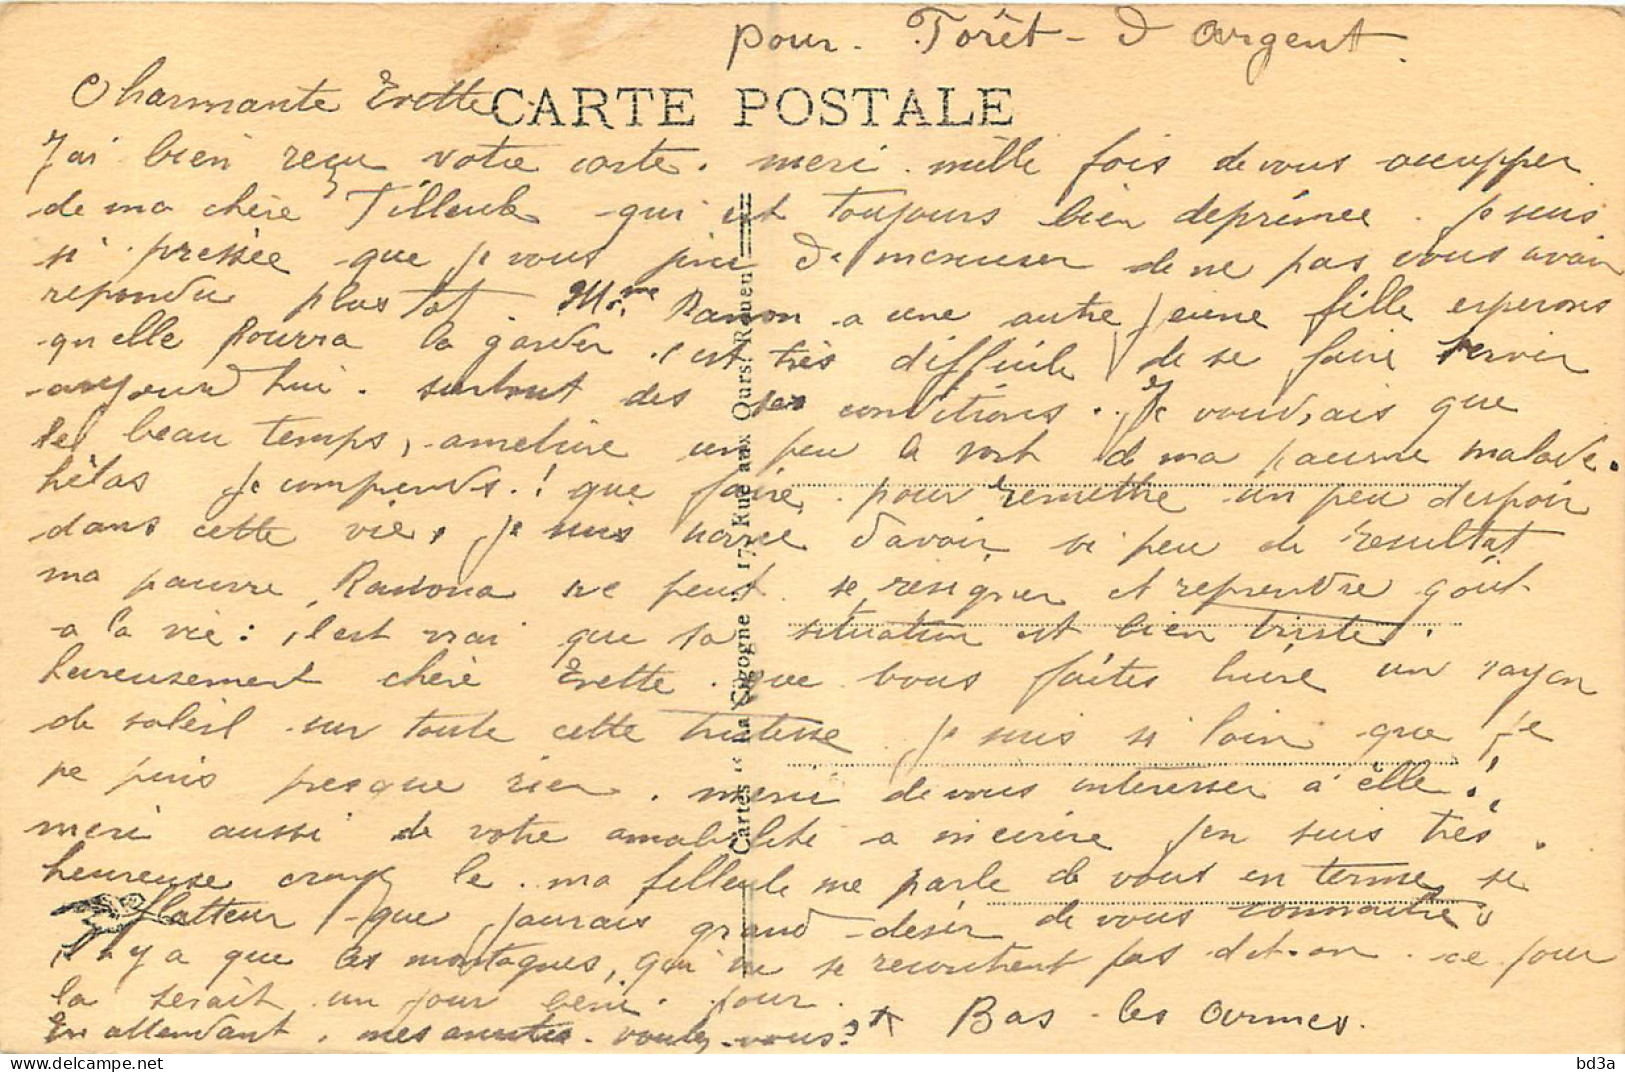 pour. Forêt - d'Argent.
Charmante Evette
CARTE POSTALE
J'ai bien reçu votre carte. merci. mille fois de vous occupper
de ma chère Filleule qui est toujours bien deprimee. je suis
si pressée que je vous prie de mexcuser de ne pas vous avoir
repondu plus tot. Mme Ramon a une autre jeune fille esperons
qu elle pourra la garder. c'est très difficile de se faire servir
aujourd hui. surtout des conditions. Je voudrais que
le beau temps, ameliore un peu le sort de ma pauvre malade.
hélas je comprends.! que faire, pour remettre un peu despoir
dans cette vie. je suis navree d'avoir si peu de resultat
ma pauvre Ramona ne peut se resigner et reprendre goût
a la vie: il est vrai que sa situation est bien triste.
heureusement chère Evette. que vous faites luire un rayon
de soleil sur toute cette tristesse je suis si loin que je
ne puis presque rien. merci de vous interesser à elle!
merci aussi de votre amabilite a m'ecrire j'en suis très.
heureuse croyez le. ma filleule me parle de vous en termes si
flatteur que j'aurais grand desir de vous connaitre
il n'y a que les montagnes, qui ne se recontrent pas dit-on. ce jour
la serait un jour beni. pour.
En attendant, mes amities. voulez-vous?
Bas - les Armes.
Cartes " La Cigogne ", 17, Rue aux Ours, Rouen
bd3a